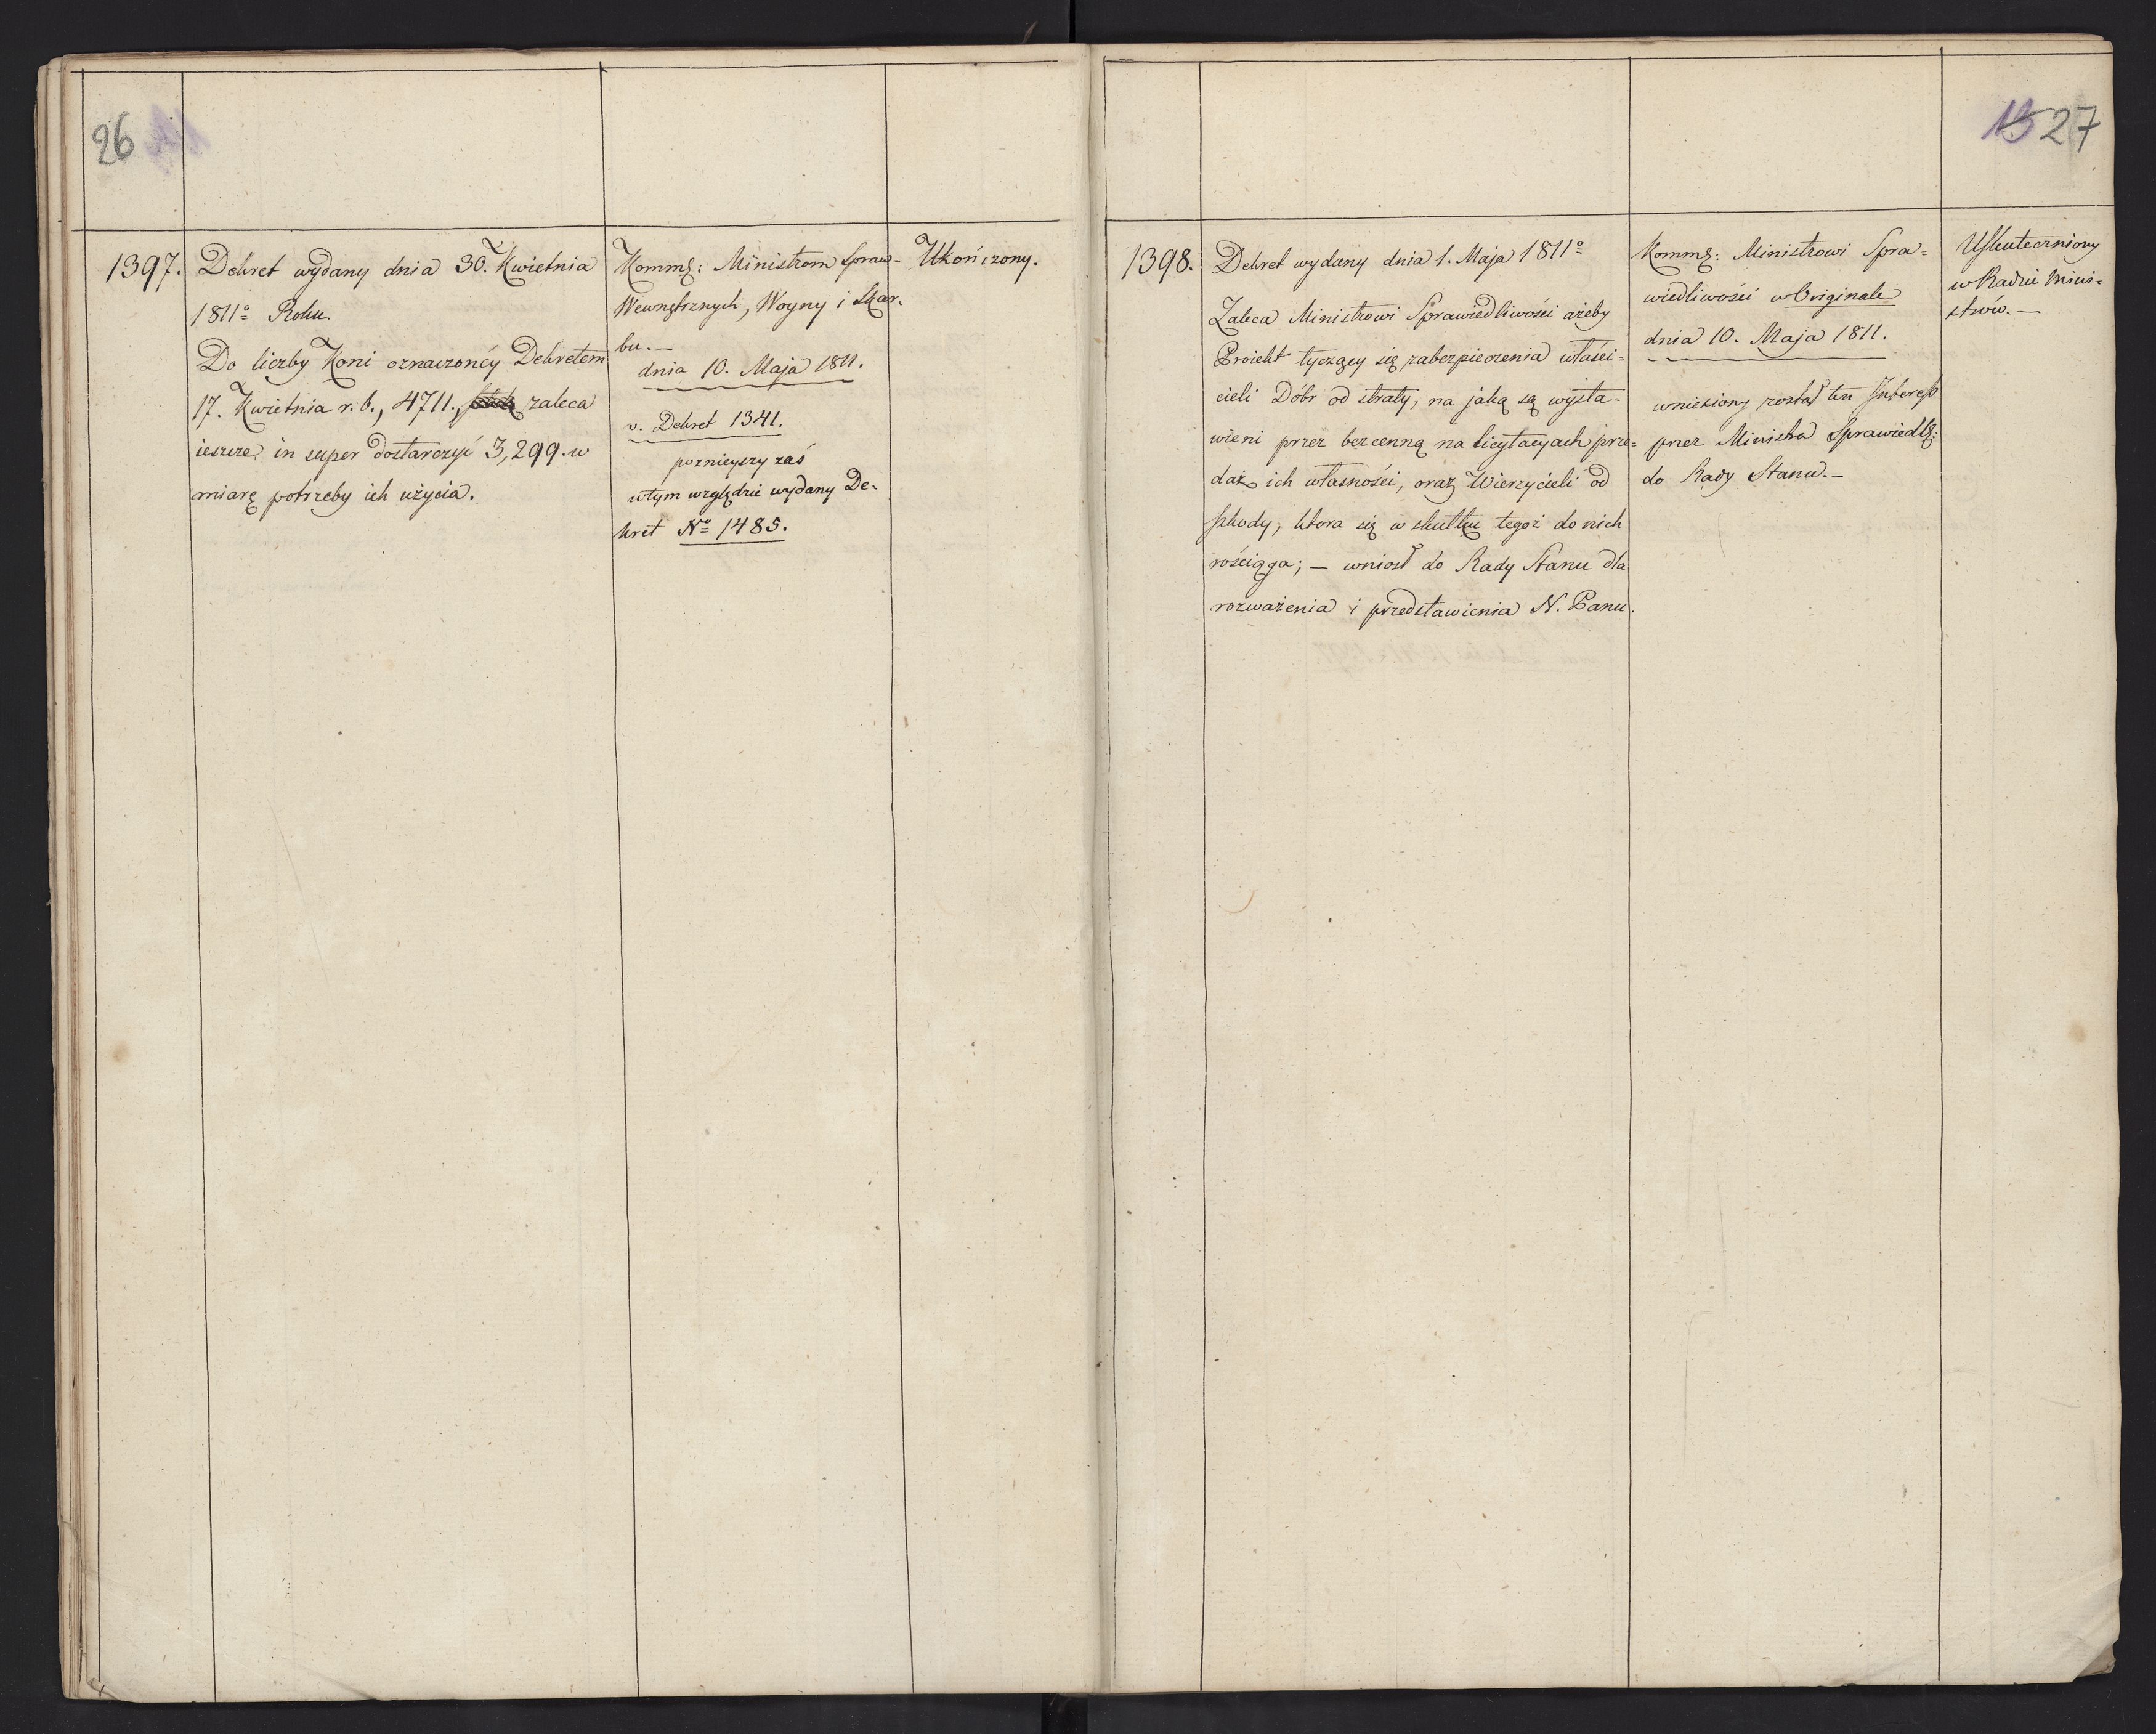 26
1397.
Dekret wydany dnia 30. Kwietnia
1811º Roku.
Do liczby Koni oznaczonéy Dekretem
17. Kwietnia r. b., 4711., zaleca
ieszcze in super dostarczyć 3,299. w
miarę potrzeby ich użycia.
Kommę: Ministrom Spraw-
Wewnętrznych, Woyny i Skar-
bu.—
dnia 10. Maja 1811.
v. Dekret 1341.
poznieyszy zaś
w tym względzie wydany De-
kret Nº 1485.
Ukończony.
15 27
1398.
Dekret wydany dnia 1. Maja 1811º
Zaleca Ministrowi Sprawiedliwości ażeby
Proiekt tyczący się zabezpieczenia właści=
cieli Dóbr od straty, na jaką są wysta=
wieni przez bezcenną na licytacyach prze=
daż ich własności, oraz Wierzycieli od
szkody, ktora się w skutku tegoż do nich
rościąga; — wniosł do Rady Stanu dla
rozważenia i przedstawienia N. Panu.
Kommę: Ministrowi Spra=
wiedliwości w Originale
dnia 10. Maja 1811.
wniesiony został ten Interess
przez Ministra Sprawiedlę:
do Rady Stanu.—
Uskuteczniony
w Radzie Mini=
strów.—